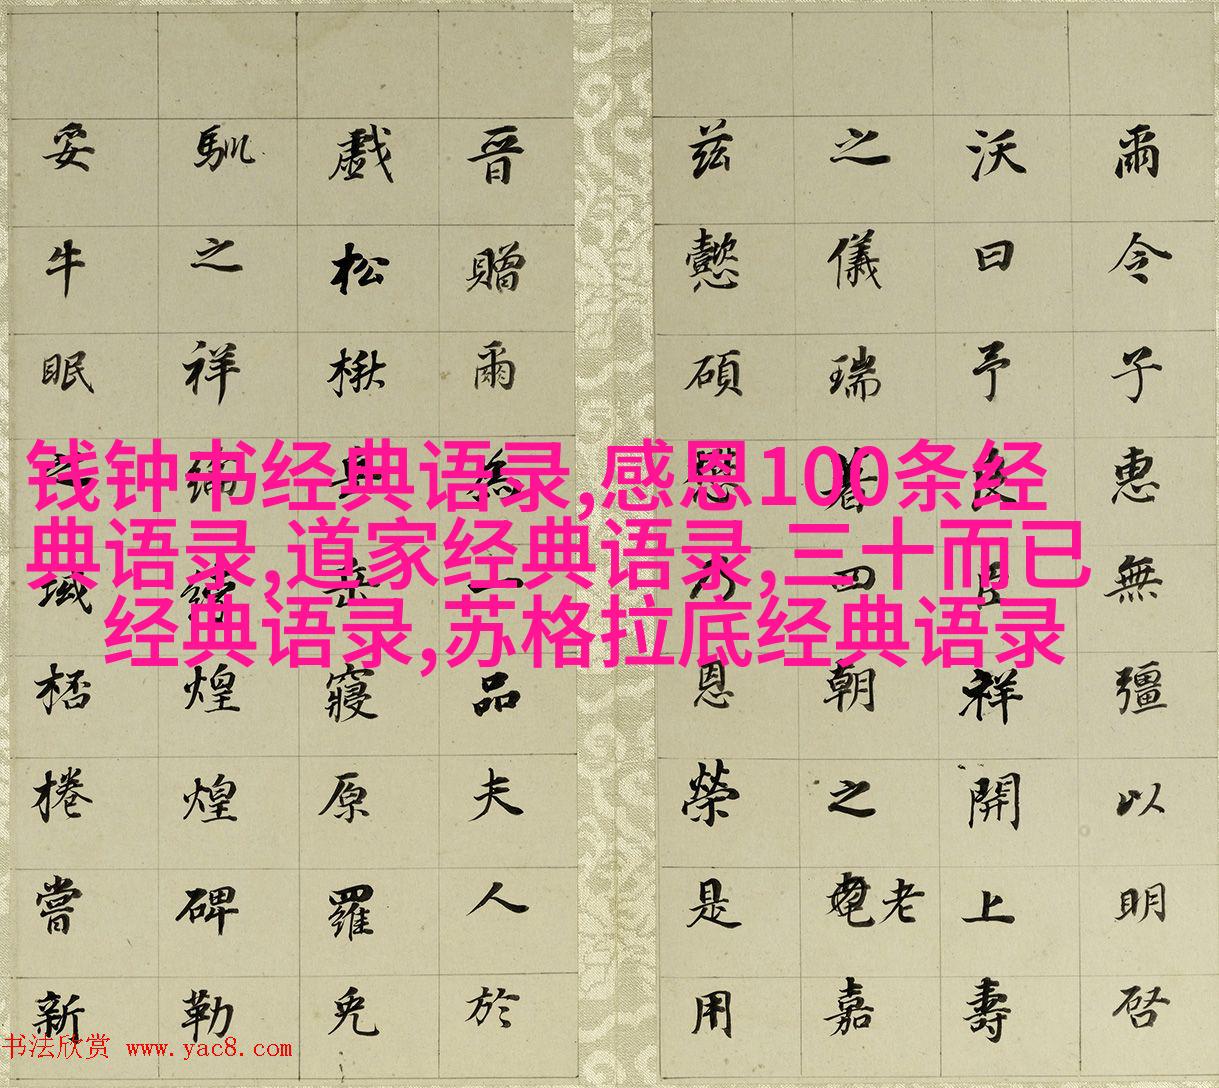 爾令子惠無彊以明啓
沃曰予祥開上壽
之儀瑞著四朝之老嘉
兹懿碩乃恩榮是用
晉贈爾為一品夫人於
戲松楸寢原羅兕
馴之祥綸綍煌煌碑勒
妥牛眠之域桮棬嘗新
钱钟书经典语录,感恩100条经
典语录,道家经典语录,三十而已
经典语录,苏格拉底经典语录
书法欣赏 www.yac8.com